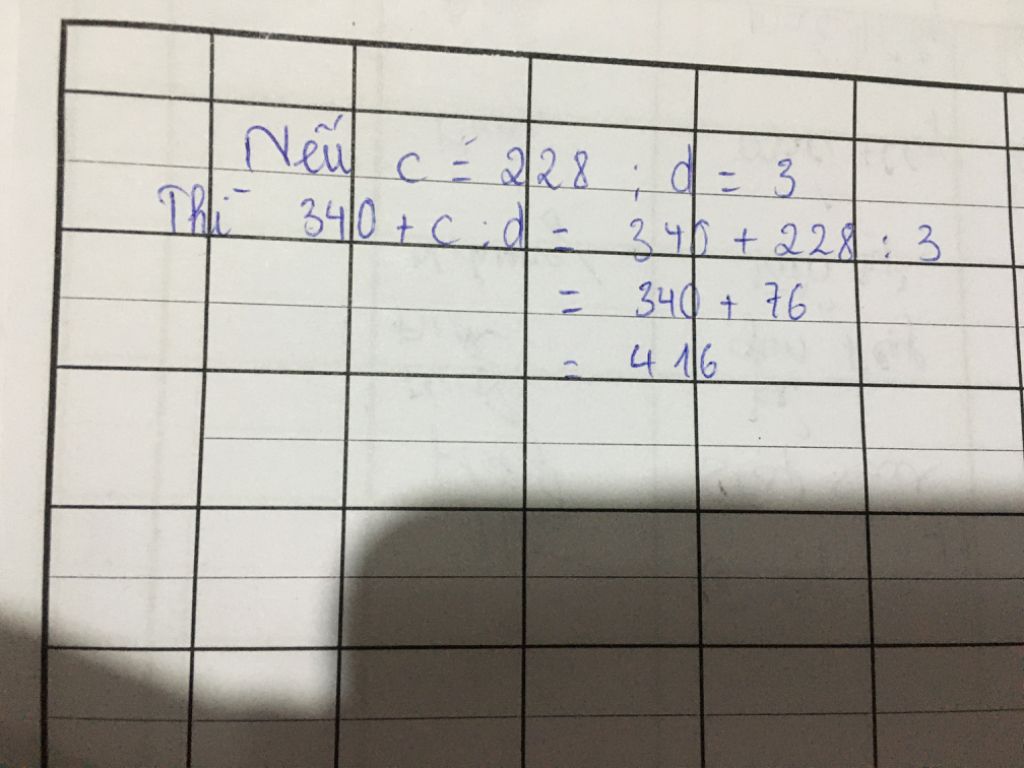 Nếu c = 228 ; d = 3
Thì 340 + c : d = 340 + 228 : 3
= 340 + 76
= 416